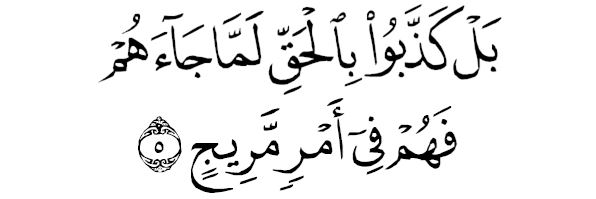 بَلْ كَذَّبُوا۟ بِٱلْحَقِّ لَمَّا جَآءَهُمْ
فَهُمْ فِىٓ أَمْرٍ مَّرِيجٍ ٥